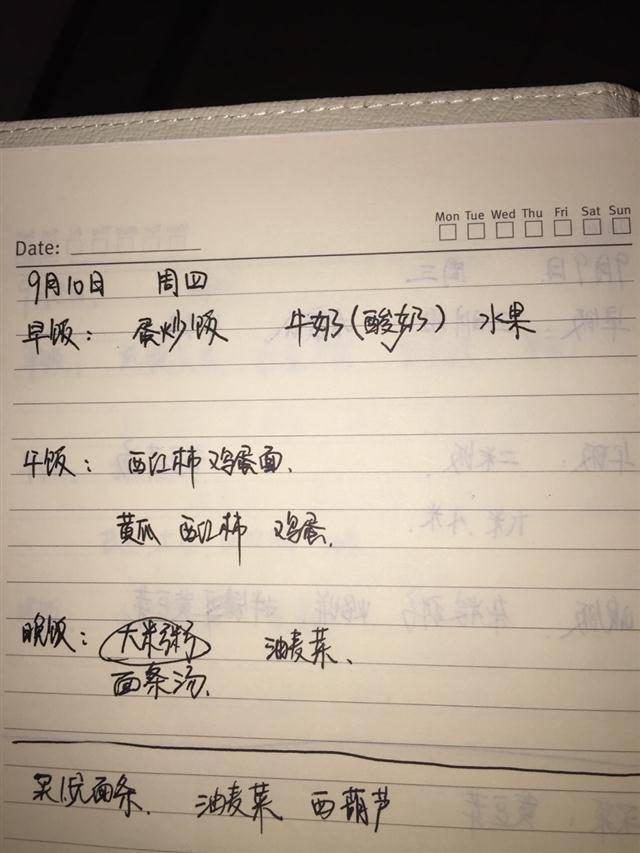 Mon Tue Wed Thu Fri Sat Sun
Date:
9月10日 周四
早饭: 蛋炒饭 牛奶(酸奶) 水果
午饭: 西红柿鸡蛋面.
黄瓜 西红柿 鸡蛋.
晚饭: 大米粥 油麦菜、
面条汤.
买:挂面条. 油麦菜 西葫芦